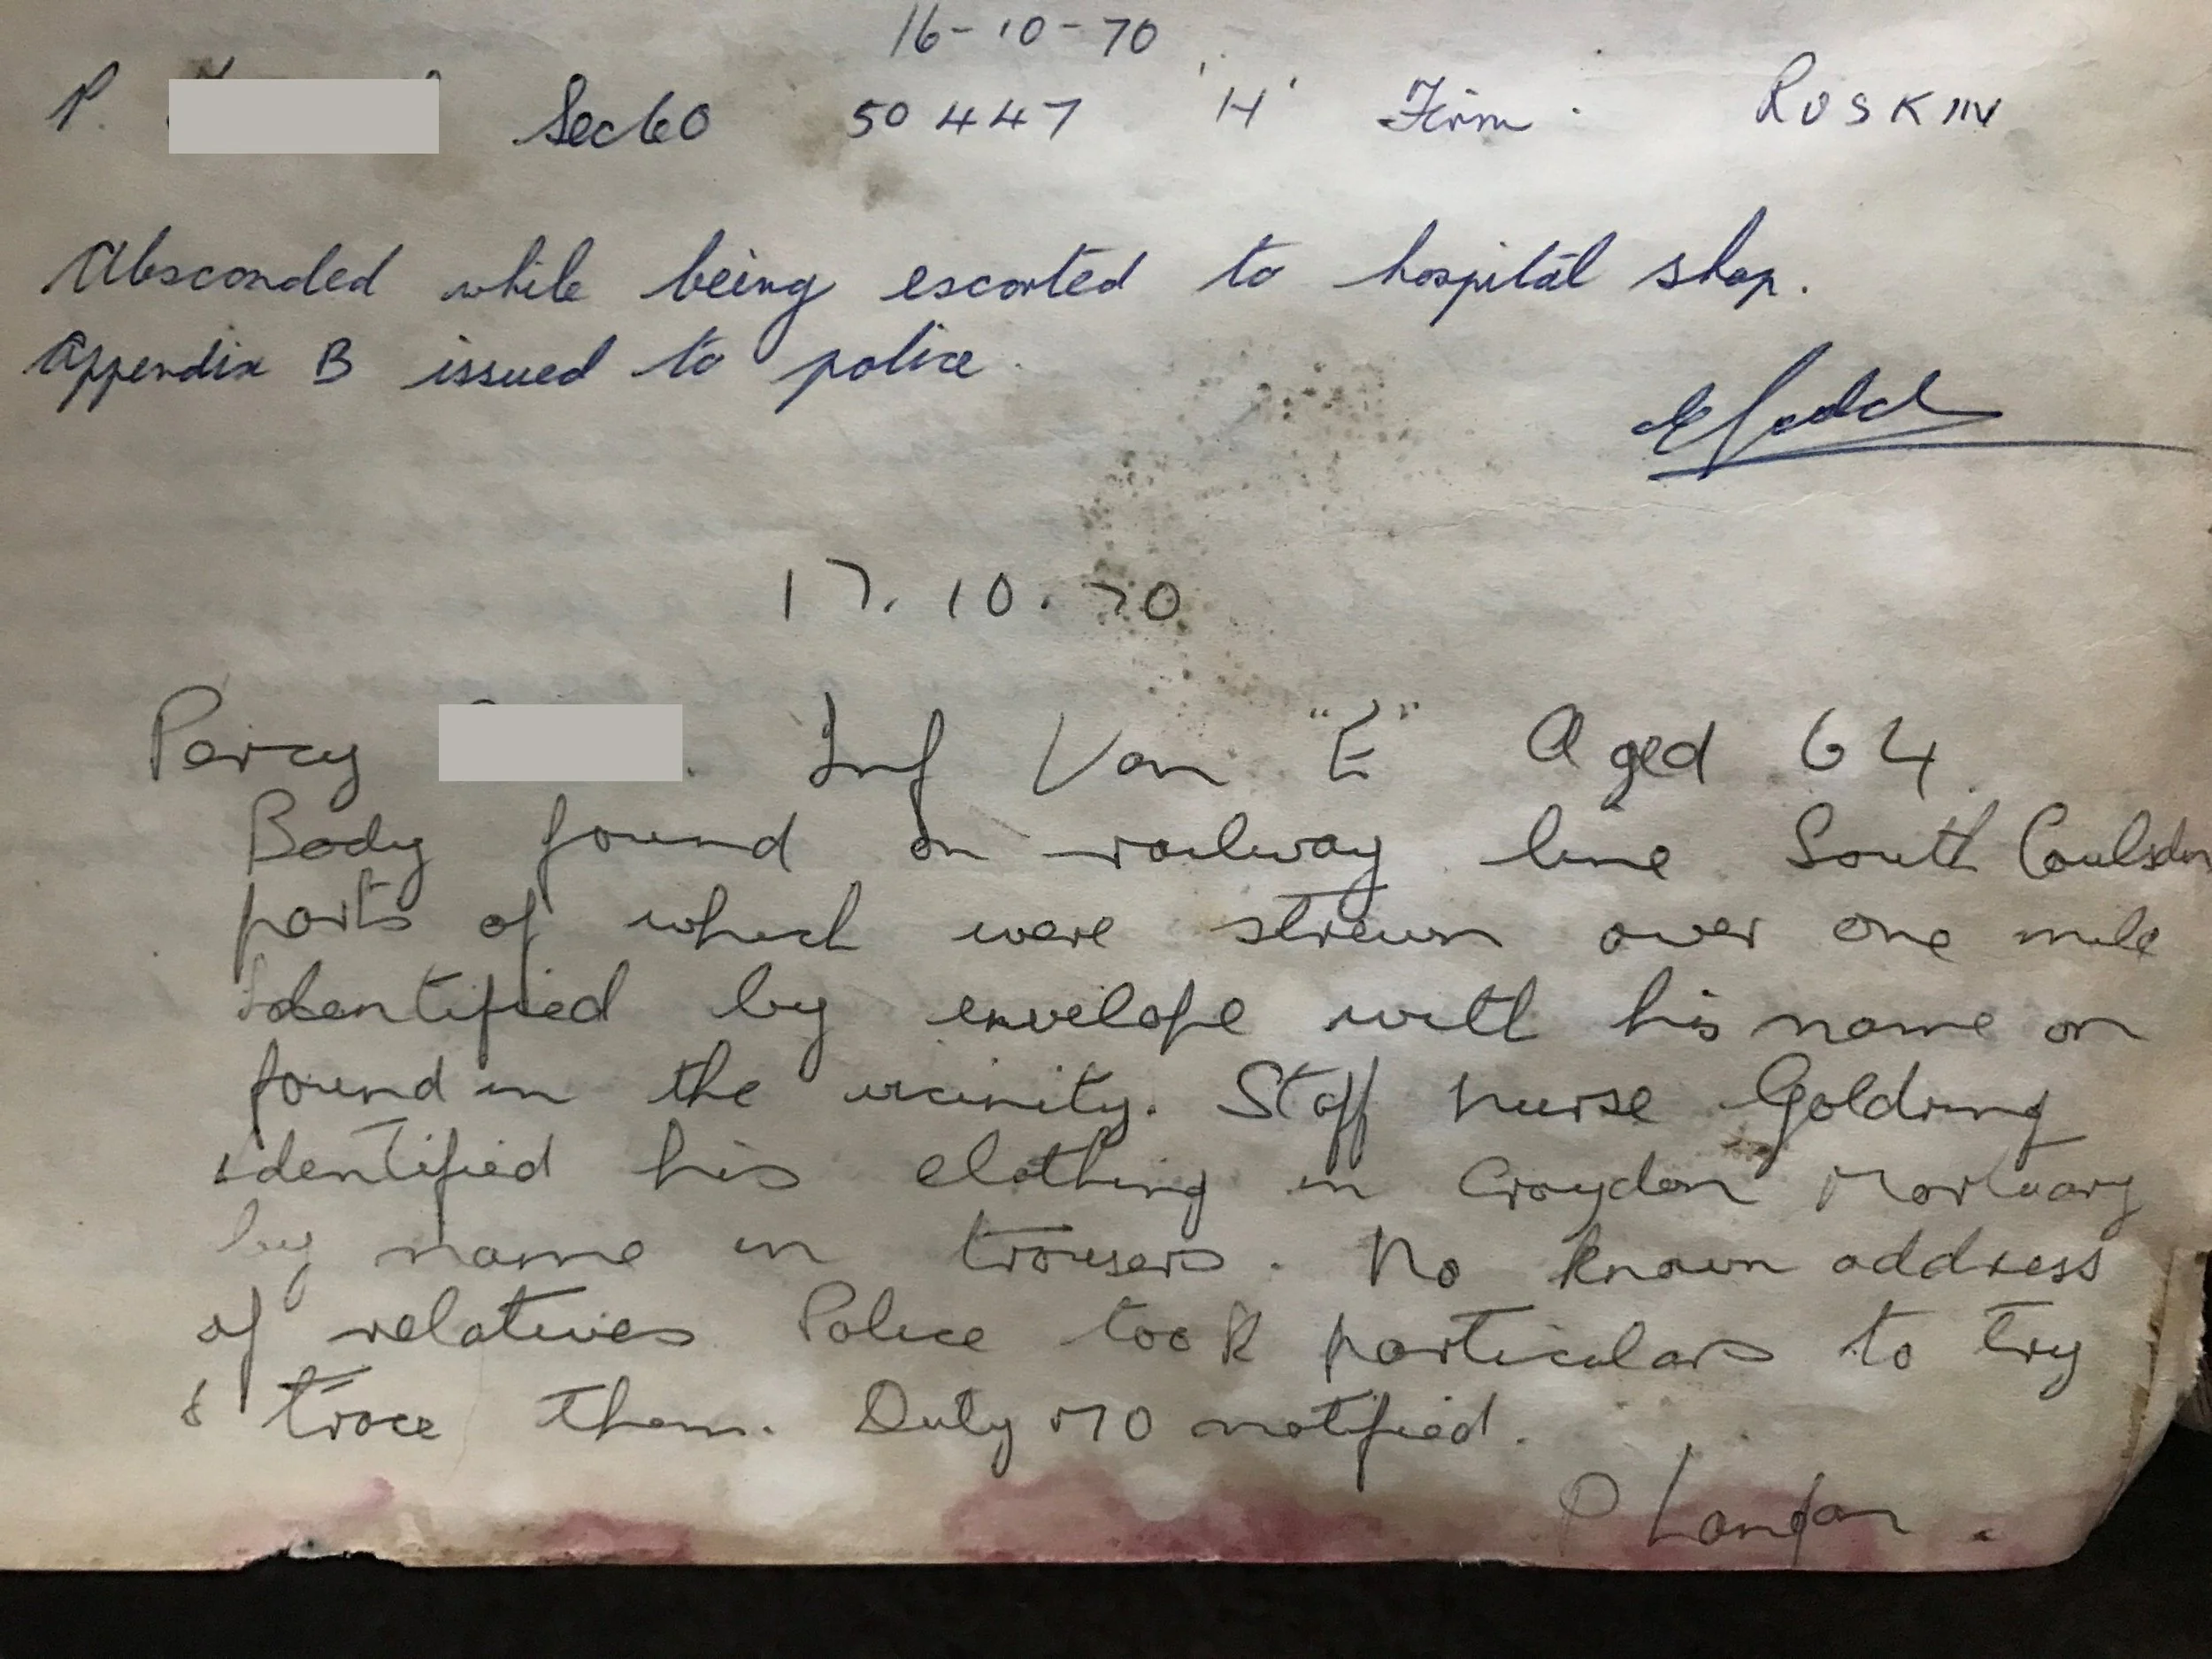 16-10-70
P. Sec 60 50447 'H' Firm. RUSKIN
Absconded while being escorted to hospital shop.
Appendix B issued to police.
17.10.70
Percy Inf "E" Aged 64.
Body found on railway line South Coulsdon
parts of which were strewn over one mile
identified by envelope with his name on
found in the vicinity. Staff nurse Goldring
identified his clothing in Croydon Mortuary
by name in trousers. No known address
of relatives Police took particulars to try
& trace them. Duty MO notified.
P